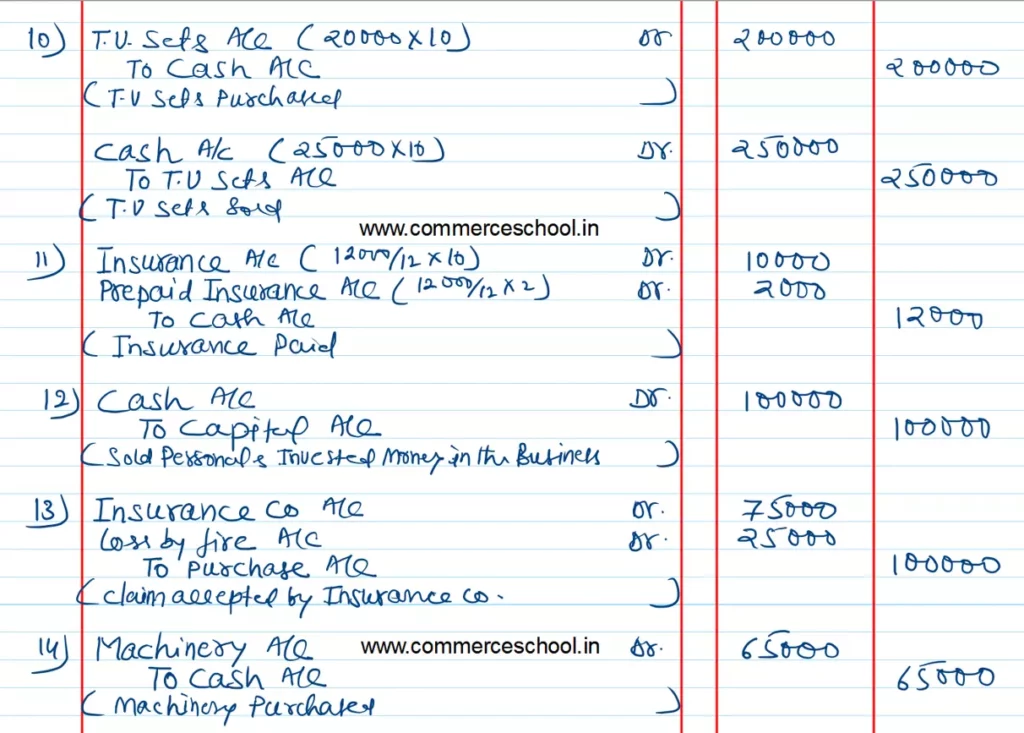 10) T.V. Sets A/c (20000×10) Dr 200000
To Cash A/c 200000
(T.V Sets Purchased)
Cash A/c (25000×10) Dr. 250000
To T.V Sets A/c 250000
(T.V Sets Sold)
www.commerceschool.in
11) Insurance A/c (12000/12×10) Dr. 10000
Prepaid Insurance A/c (12000/12×2) Dr. 2000
To Cash A/c 12000
(Insurance Paid)
12) Cash A/c Dr. 100000
To Capital A/c 100000
(Sold Personal & Invested Money in the Business)
13) Insurance Co A/c Dr. 75000
Loss by fire A/c Dr. 25000
To Purchase A/c 100000
(Claim accepted by Insurance Co.)
14) Machinery A/c www.commerceschool.in Dr. 65000
To Cash A/c 65000
(Machinery Purchased)